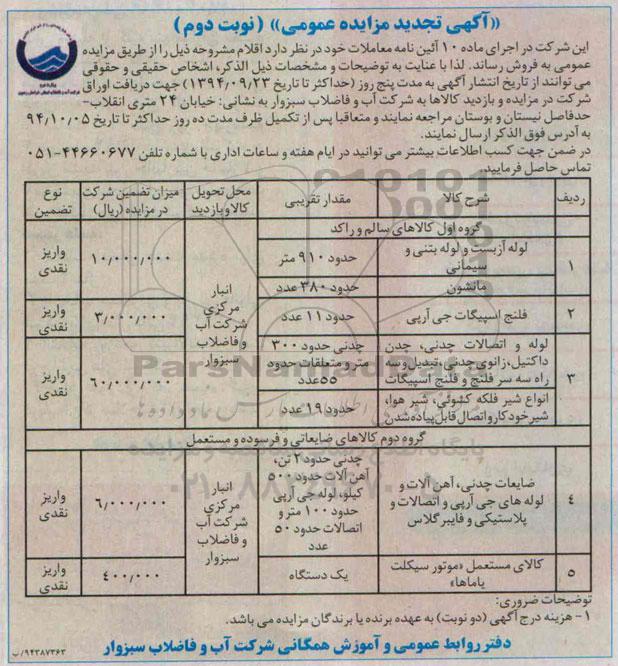 «آگهی تجدید مزایده عمومی» (نوبت دوم)
این شرکت در اجرای ماده ۱۰ آئین نامه معاملات خود در نظر دارد اقلام مشروحه ذیل را از طریق مزایده
عمومی به فروش رساند. لذا با عنایت به توضیحات و مشخصات ذیل الذکر، اشخاص حقیقی و حقوقی
می توانند از تاریخ انتشار آگهی به مدت پنج روز (حداکثر تا تاریخ ۱۳۹۴،۰۹،۲۳) جهت دریافت اوراق
شرکت در مزایده و بازدید کالاها به شرکت آب و فاضلاب سبزوار به نشانی: خیابان ۲۴ متری انقلاب-
حدفاصل نیستان و بوستان مراجعه نمایند و متعاقبا پس از تکمیل ظرف مدت ده روز حداکثر تا تاریخ ۹۴،۱۰،۰۵
به آدرس فوق الذکر ارسال نمایند.
در ضمن جهت کسب اطلاعات بیشتر می توانید در ایام هفته و ساعات اداری با شماره تلفن ۴۴۶۶۰۶۷۷-۰۵۱
تماس حاصل فرمایید.
ردیف شرح کالا مقدار تقریبی محل تحویل کالا و بازدید میزان تضمین شرکت در مزایده (ریال) نوع تضمین
گروه اول کالاهای سالم و راکد
۱ لوله آزبست و لوله بتنی و سیمانی حدود ۹۱۰ متر ۱۰,۰۰۰,۰۰۰ واریز نقدی
مانشون حدود ۳۸۰ عدد
انبار مرکزی شرکت آب و فاضلاب سبزوار
۲ فلنج اسپیگات جی آرپی حدود ۱۱ عدد ۳,۰۰۰,۰۰۰ واریز نقدی
۳ لوله و اتصالات چدنی، چدن داکتیل، زانوی چدنی، تبدیل و سه راه سه سر فلنج و فلنج اسپیگات چدنی حدود ۳۰۰ متر و متعلقات حدود ۵۵ عدد ۶۰,۰۰۰,۰۰۰ واریز نقدی
انواع شیر فلکه کشوئی، شیر هوا، شیر خودکار و اتصال قابل پیاده شدن حدود ۱۹ عدد
گروه دوم کالاهای ضایعاتی و فرسوده و مستعمل
۴ ضایعات چدنی، آهن آلات و لوله های جی آرپی و اتصالات و پلاستیکی و فایبر گلاس چدنی حدود ۲ تن، آهن آلات حدود ۵۰۰ کیلو، لوله جی آرپی حدود ۱۰۰ متر و اتصالات حدود ۵۰ عدد انبار مرکزی شرکت آب و فاضلاب سبزوار ۶,۰۰۰,۰۰۰ واریز نقدی
۵ کالای مستعمل «موتور سیکلت یاماها» یک دستگاه ۴۰۰,۰۰۰ واریز نقدی
توضیحات ضروری:
۱- هزینه درج آگهی (دو نوبت) به عهده برنده یا برندگان مزایده می باشد.
دفتر روابط عمومی و آموزش همگانی شرکت آب و فاضلاب سبزوار
۹۴۳۸۷۳۶۳/ب
ParsNamadData